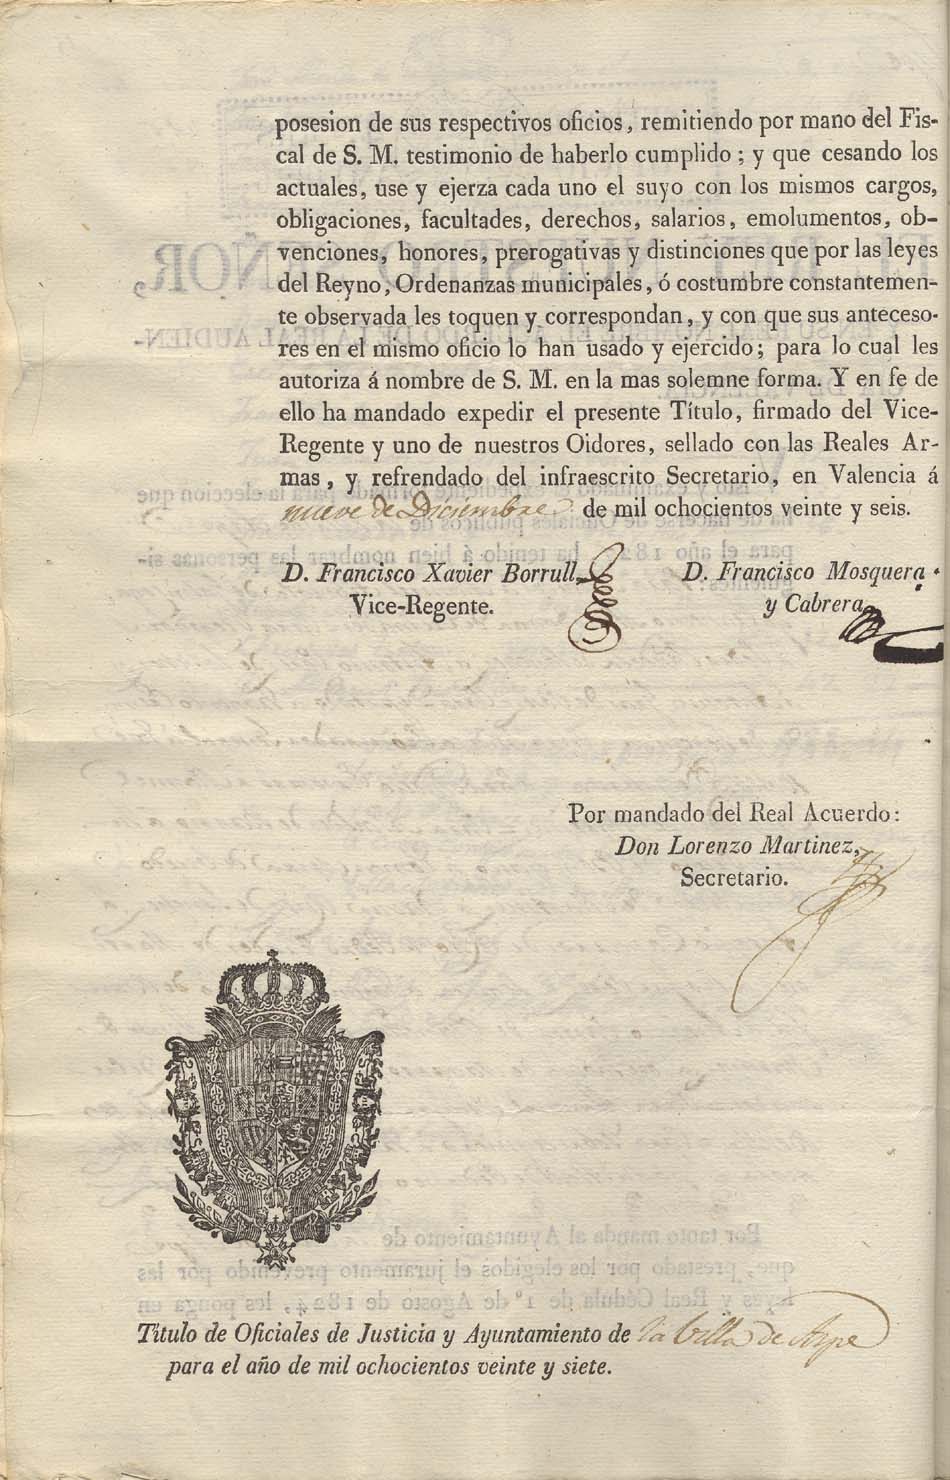 posesion de sus respectivos oficios, remitiendo por mano del Fis-
cal de S. M. testimonio de haberlo cumplido; y que cesando los
actuales, use y ejerza cada uno el suyo con los mismos cargos,
obligaciones, facultades, derechos, salarios, emolumentos, ob-
venciones, honores, prerogativas y distinciones que por las leyes
del Reyno, Ordenanzas municipales, ó costumbre constantemen-
te observada les toquen y correspondan, y con que sus anteceso-
res en el mismo oficio lo han usado y ejercido; para lo cual les
autoriza á nombre de S. M. en la mas solemne forma. Y en fe de
ello ha mandado expedir el presente Título, firmado del Vice-
Regente y uno de nuestros Oidores, sellado con las Reales Ar-
mas, y refrendado del infraescrito Secretario, en Valencia á
nueve de Diciembre de mil ochocientos veinte y seis.
D. Francisco Xavier Borrull, D. Francisco Mosquera
Vice-Regente. y Cabrera.
Por mandado del Real Acuerdo:
Don Lorenzo Martinez,
Secretario.
Título de Oficiales de Justicia y Ayuntamiento de la Villa de Aspe
para el año de mil ochocientos veinte y siete.